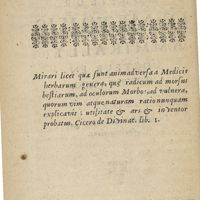 Mirari licet quæ sunt animadversa a Medicis
herbarum genera, quę radicum ad morsus
bestiarum, ad oculorum Morbos, ad vulnera,
quorum vim atque naturam ratio nunquam
explicavit : utilitate & ars & inventor
probatus. Cicero de Divinat. lib. 1.